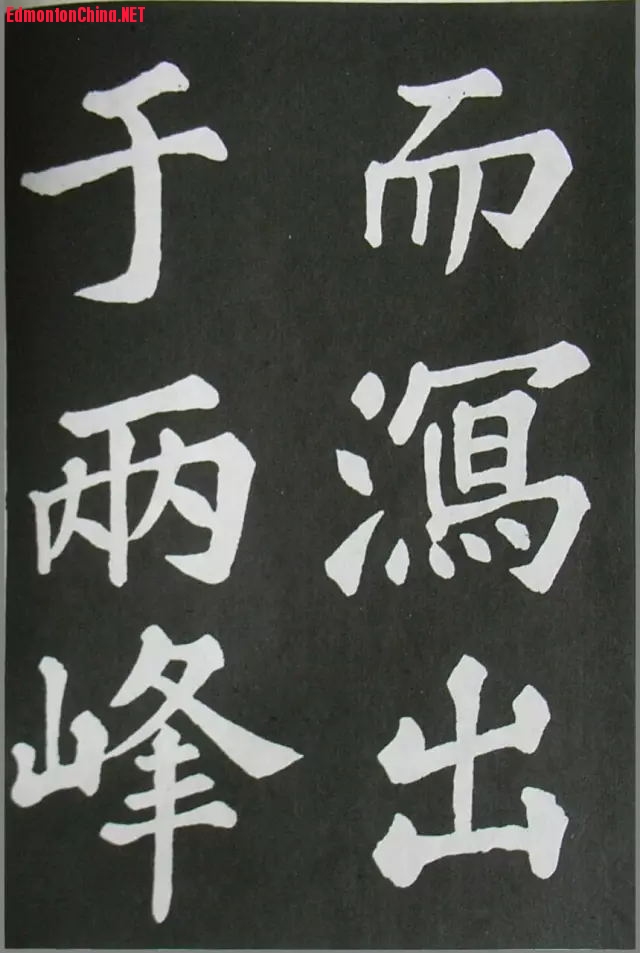 EdmontonChina.NET
而瀉出
于兩峰